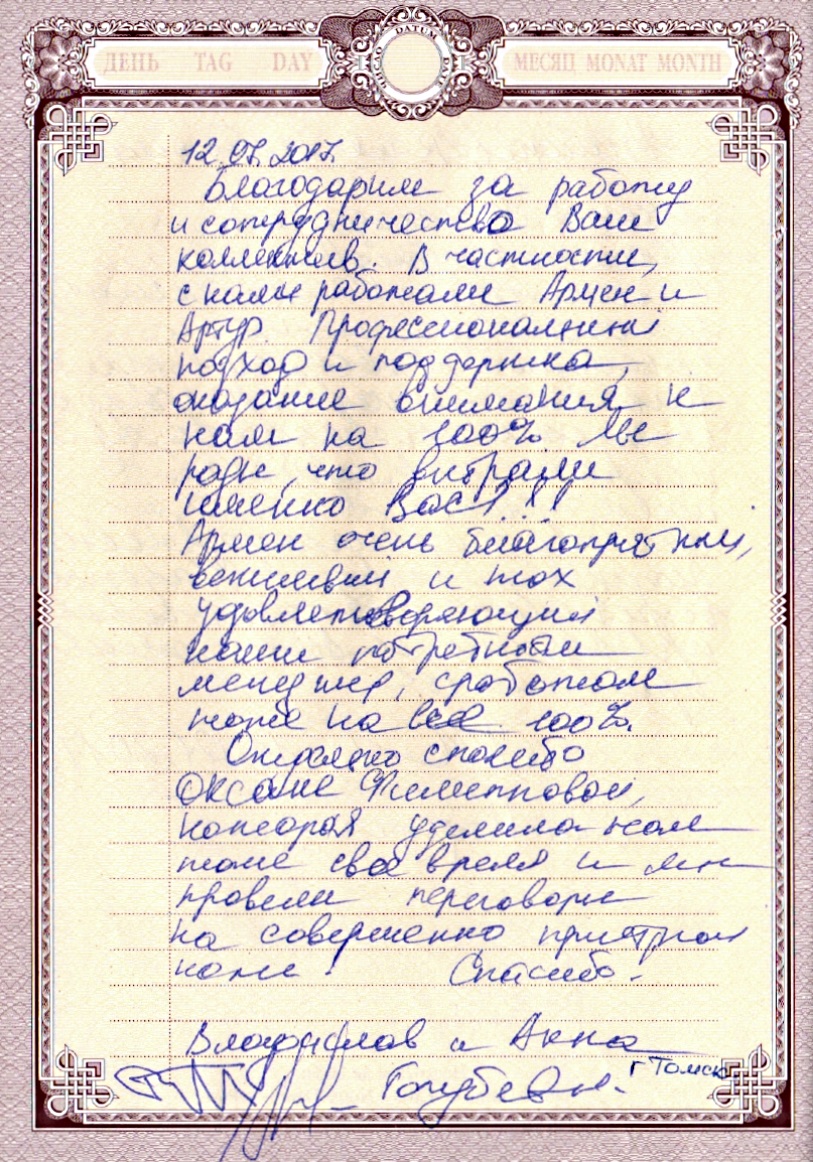 ДЕНЬ TAG DAY
DATUM
DATE
МЕСЯЦ MONAT MONTH
12.07.2017.
Благодарим за работу
и сотрудничество Ваш
коллектив. В частности,
с нами работали Армен и
Артур. Профессиональный
подход и поддержка,
оказание внимания к
нам на 100% Мы
рады, что выбрали
именно Вас!!!
Армен очень благоприятный,
вежливый и
удовлетворяющий
наши
менеджер, сработал
тоже на все 100%.
Отдельно спасибо
Оксане Филипповой,
которая уделила нам
тоже своё время и мы
провели переговоры
на совершенно приятной
ноте! Спасибо.
Владислав и Анна
Голубевы.
г Томск